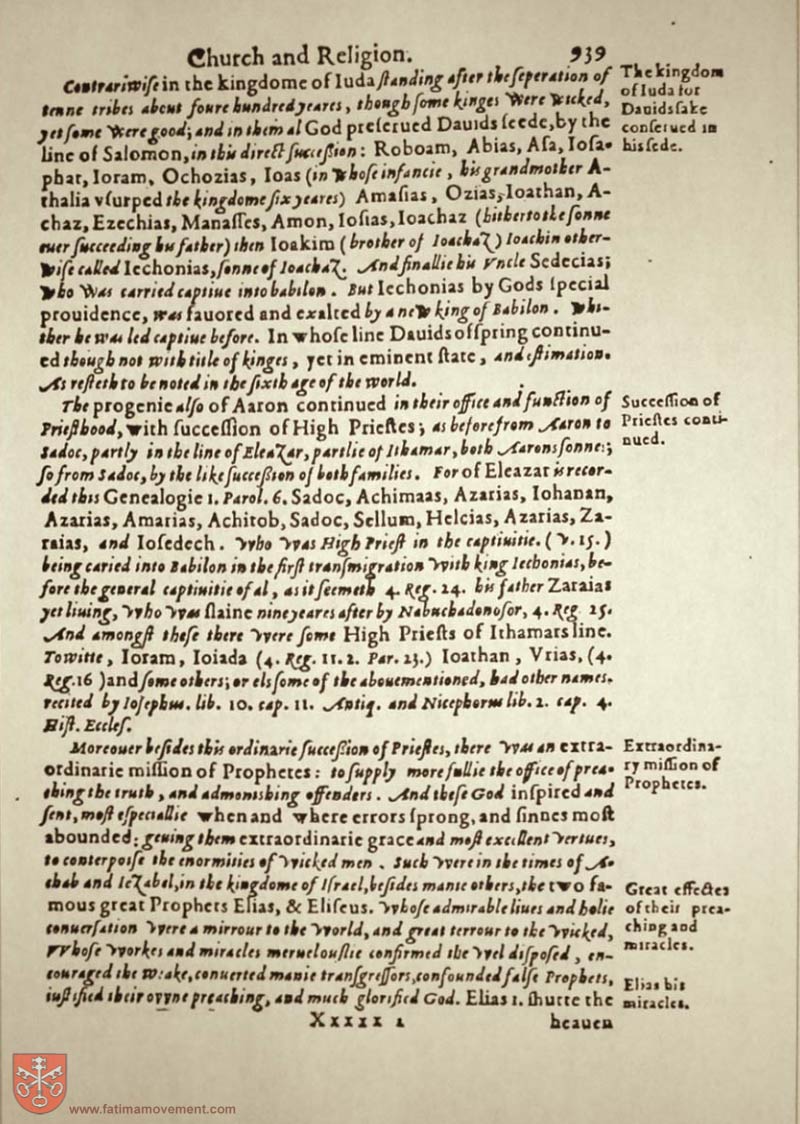 Church and Religion. 939
Contrariwiſe in the kingdome of Iuda ſtanding after the ſeperation of
tenne tribes about foure hundred yeares, though ſome kinges were wicked,
yet ſome were good; and in them al God preſerued Dauids ſeede, by the
line of Salomon, in this direct ſucceſſion: Roboam, Abias, Aſa, Ioſa-
phat, Ioram, Ochozias, Ioas (in whoſe infancie, his grandmother A-
thalia vſurped the kingdome ſix yeares) Amaſias, Ozias, Ioathan, A-
chaz, Ezechias, Manaſſes, Amon, Ioſias, Ioachaz (hitherto the ſonne
euer ſucceeding his father) then Ioakim (brother of Ioachaz) Ioachin other-
wiſe called Iechonias, ſonne of Ioachaz. And finallie his Vncle Sedecias;
who was carried captiue into babilon. But Iechonias by Gods ſpecial
prouidence, was fauored and exalted by a new king of Babilon. Whi-
ther he was led captiue before. In whoſe line Dauids ofſpring continu-
ed though not with title of kinges, yet in eminent ſtate, and eſtimation.
As reſteth to be noted in the ſixth age of the world.
The kingdom
of Iuda for
Dauids ſake
conſerued in
his ſede.
The progenie alſo of Aaron continued in their office and function of
Prieſthood, with ſucceſſion of High Prieſtes; as before from Aaron to
Sadoc, partly in the line of Eleazar, partlie of Ithamar, both Aarons ſonnes;
ſo from Sadoc, by the like ſucceſſion of both families. For of Eleazar is recor-
ded this Genealogie 1. Parol. 6. Sadoc, Achimaas, Azarias, Iohanan,
Azarias, Amarias, Achitob, Sadoc, Sellum, Helcias, Azarias, Za-
raias, and Ioſedech. Who was High Prieſt in the captiuitie. (v. 15.)
being caried into Babilon in the firſt tranſmigration with king Iechonias, be-
fore the general captiuitie of al, as it ſeemeth 4. Reg. 24. his father Zaraias
yet liuing, who was ſlaine nine yeares after by Nabuchadonoſor, 4. Reg 25.
And amongſt theſe there were ſome High Prieſts of Ithamars line.
To witte, Ioram, Ioiada (4. Reg. 11. 2. Par. 23.) Ioathan, Vrias, (4.
Reg. 16 ) and ſome others; or els ſome of the abouementioned, had other names.
recited by Ioſephus. lib. 10. cap. 11. Antiq. and Nicephorus lib. 2. cap. 4.
Hiſt. Eccleſ.
Succeſſion of
Prieſtes conti-
nued.
Moreouer beſides this ordinarie ſucceſſion of Prieſtes, there was an extra-
ordinarie miſſion of Prophetes: to ſupply more fullie the office of prea-
ching the truth, and admoniſhing offenders. And theſe God inſpired and
ſent, moſt eſpeciallie when and where errors ſprong, and ſinnes moſt
abounded: geuing them extraordinarie grace and moſt excellent vertues,
to conterpoiſe the enormities of wicked men. Such were in the times of A-
chab and Iezabel, in the kingdome of Iſrael, beſides manie others, the two fa-
mous great Prophets Elias, & Eliſeus. Whoſe admirable liues and holie
conuerſation were a mirrour to the world, and great terrour to the wicked,
Whoſe workes and miracles meruelouſlie confirmed the wel diſpoſed, en-
couraged the weake, conuerted manie tranſgreſſors, confounded falſe Prophets,
iuſtified their owne preaching, and much glorified God. Elias 1. ſhutte the
Extraordina-
ry miſſion of
Prophetes.
Great effectes
of their prea-
ching and
miracles.
Elias his
miracles.
Xxxxx 1 heauen
www.fatimamovement.com